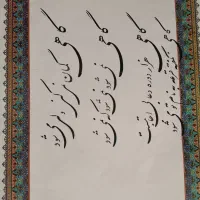 گاهی گمان نمیکنی ولی می شود
گاهی نمی شود نمی شود که نمی شود
گاهی هزار دوره دعا بی اجابت است
گاهی نگفته قرعه به نام تو می شود